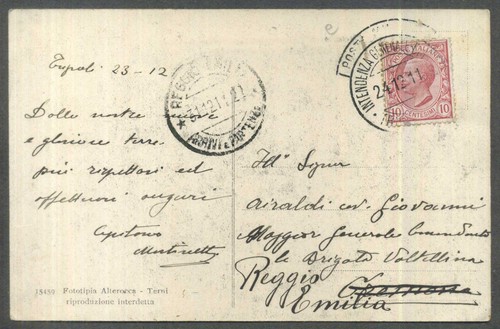 Tripoli 23-12
Dalle nostre nuove
e gloriose terre
più rispettosi ed
affettuosi auguri
Capitano
Martinelli
REGGIO EMILIA
31.12.11
ARRIVI E PARTENZE
POSTA
INTENDENZA GENERALE
24.12.11
POSTE ITALIANE
10 CENTESIMI 10
Ill. Signor
Airaldi cav. Giovanni
Maggior Generale Comandante
la Brigata Valtellina
Reggio
Emilia
Cremona
15499 Fototipia Alterocca - Terni
riproduzione interdetta